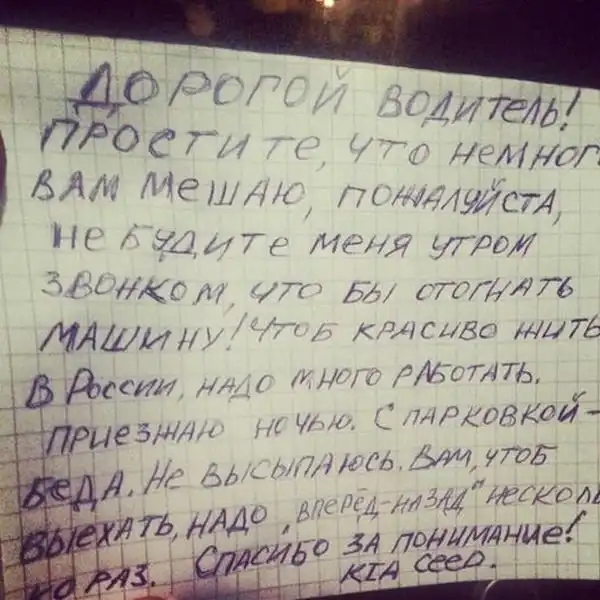 ДОРОГОЙ ВОДИТЕЛЬ!
ПРОСТИТЕ, ЧТО НЕМНОГ
ВАМ МЕШАЮ, ПОЖАЛУЙСТА,
НЕ БУДИТЕ МЕНЯ УТРОМ
ЗВОНКОМ, ЧТО БЫ ОТОГНАТЬ
МАШИНУ! ЧТОБ КРАСИВО ЖИТЬ
В РОССИИ, НАДО МНОГО РАБОТАТЬ.
ПРИЕЗЖАЮ НОЧЬЮ. С ПАРКОВКОЙ-
БЕДА. НЕ ВЫСЫПАЮСЬ. ВАМ, ЧТОБ
ВЫЕХАТЬ, НАДО „ВПЕРЁД-НАЗАД" НЕСКОЛЬ
КО РАЗ. СПАСИБО ЗА ПОНИМАНИЕ!
KIA CEED.